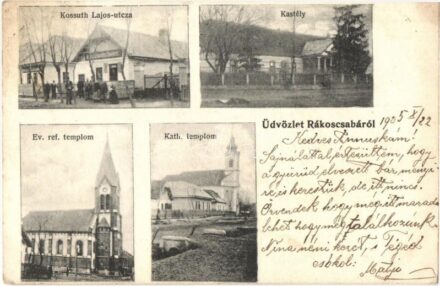 Kossuth Lajos-utcza
Kastély
Ev. ref. templom
Kath. templom
Üdvözlet Rákoscsabáról
1905 X/22
Kedves Annuskám!
Sajnálattal értesültem, hogy
a gyűrűd elveszett bár mennyi
re is kerestük, de itt nincs.
Örvendek hogy megitt marad
lehet hogy még találkozunk.
Nina néni kéret, s Téged
csókol: